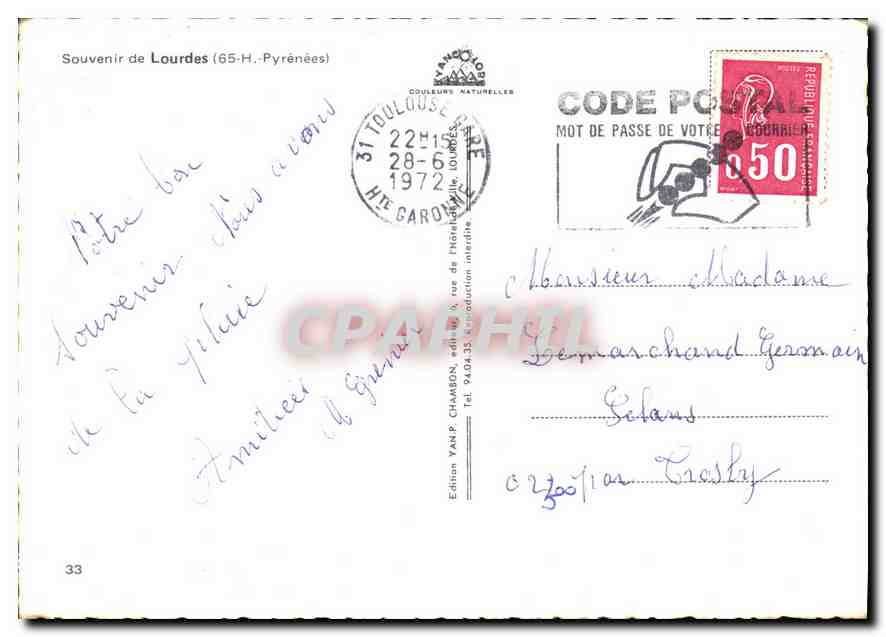 Souvenir de Lourdes (65-H.-Pyrénées)
YAN COLOR
COULEURS NATURELLES
31 TOULOUSE GARE
22H15
28-6
1972
HTE GARONNE
CODE POSTAL
MOT DE PASSE DE VOTRE COURRIER
POSTES
REPUBLIQUE FRANCAISE
0,50
Nôtre bon
souvenir Nous avons
de la pluie
Amitiées
Monsieur Madame
Lemarchand Germain
par Crosly
Edition YAN.P. CHAMBON, editeur, 6, rue de l'Hôtel de Ville, LOURDES
Tel. 94.04.35. Reproduction interdite.
CPAPHIL
33